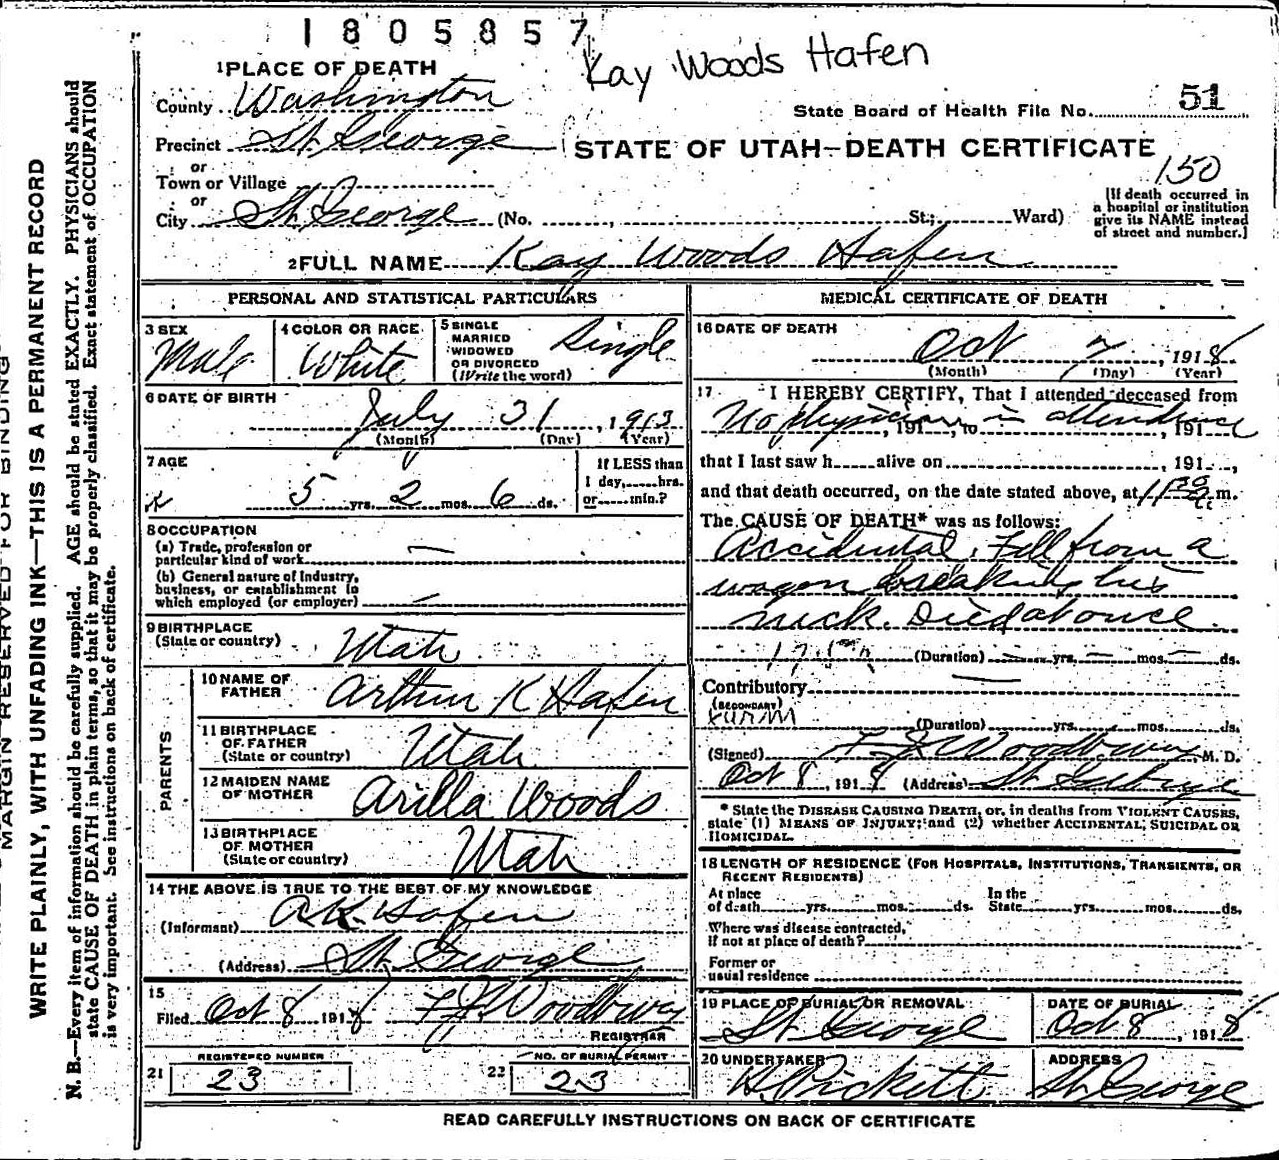 1805857
Kay Woods Hafen
1 PLACE OF DEATH
County Washington
State Board of Health File No. 51
Precinct St. George
STATE OF UTAH—DEATH CERTIFICATE
or
Town or Village
150
or
City St George (No. , St.; Ward)
[If death occurred in
a hospital or institution
give its NAME instead
of street and number.]
2 FULL NAME Kay Woods Hafen
PERSONAL AND STATISTICAL PARTICULARS
3 SEX
Male
4 COLOR OR RACE
White
5 SINGLE
MARRIED
WIDOWED
OR DIVORCED
(Write the word)
Single
6 DATE OF BIRTH
July 31, 1913
(Month) (Day) (Year)
7 AGE
5 yrs. 2 mos. 6 ds.
If LESS than
1 day, hrs.
or min.?
8 OCCUPATION
(a) Trade, profession or
particular kind of work —
(b) General nature of Industry,
business, or establishment in
which employed (or employer) —
9 BIRTHPLACE
(State or country) Utah
PARENTS
10 NAME OF
FATHER Arthur K Hafen
11 BIRTHPLACE
OF FATHER
(State or country) Utah
12 MAIDEN NAME
OF MOTHER Arilla Woods
13 BIRTHPLACE
OF MOTHER
(State or country) Utah
14 THE ABOVE IS TRUE TO THE BEST OF MY KNOWLEDGE
(Informant) A K Hafen
(Address) St. George
15
Filed Oct 8 1918 F J Woodbury
REGISTRAR
REGISTERED NUMBER
21 23
NO. OF BURIAL PERMIT
22 23
MEDICAL CERTIFICATE OF DEATH
16 DATE OF DEATH
Oct 7, 1918
(Month) (Day) (Year)
17 I HEREBY CERTIFY, That I attended deceased from
No physician in attendance
, 191 , to , 191
that I last saw h alive on , 191 ,
and that death occurred, on the date stated above, at 11 30 a. m.
The CAUSE OF DEATH* was as follows:
Accidental. Fell from a
wagon breaking his
neck. Died at once.
(Duration) — yrs. — mos. — ds.
Contributory —
(SECONDARY)
(Duration) yrs. mos. ds.
(Signed) F J Woodbury M. D.
Oct 8, 1918 (Address) St George
* State the DISEASE CAUSING DEATH, or, in deaths from VIOLENT CAUSES,
state (1) MEANS OF INJURY; and (2) whether ACCIDENTAL, SUICIDAL OR
HOMICIDAL.
18 LENGTH OF RESIDENCE (FOR HOSPITALS, INSTITUTIONS, TRANSIENTS, OR
RECENT RESIDENTS)
At place
of death yrs. mos. ds.
In the
State yrs. mos. ds.
Where was disease contracted,
if not at place of death?
Former or
usual residence
19 PLACE OF BURIAL OR REMOVAL
St George
DATE OF BURIAL
Oct 8, 1918
20 UNDERTAKER
Pickett
ADDRESS
St George
READ CAREFULLY INSTRUCTIONS ON BACK OF CERTIFICATE
MARGIN RESERVED FOR BINDING
WRITE PLAINLY, WITH UNFADING INK—THIS IS A PERMANENT RECORD
N. B.—Every item of information should be carefully supplied. AGE should be stated EXACTLY. PHYSICIANS should
state CAUSE OF DEATH in plain terms, so that it may be properly classified. Exact statement of OCCUPATION
is very important. See instructions on back of certificate.